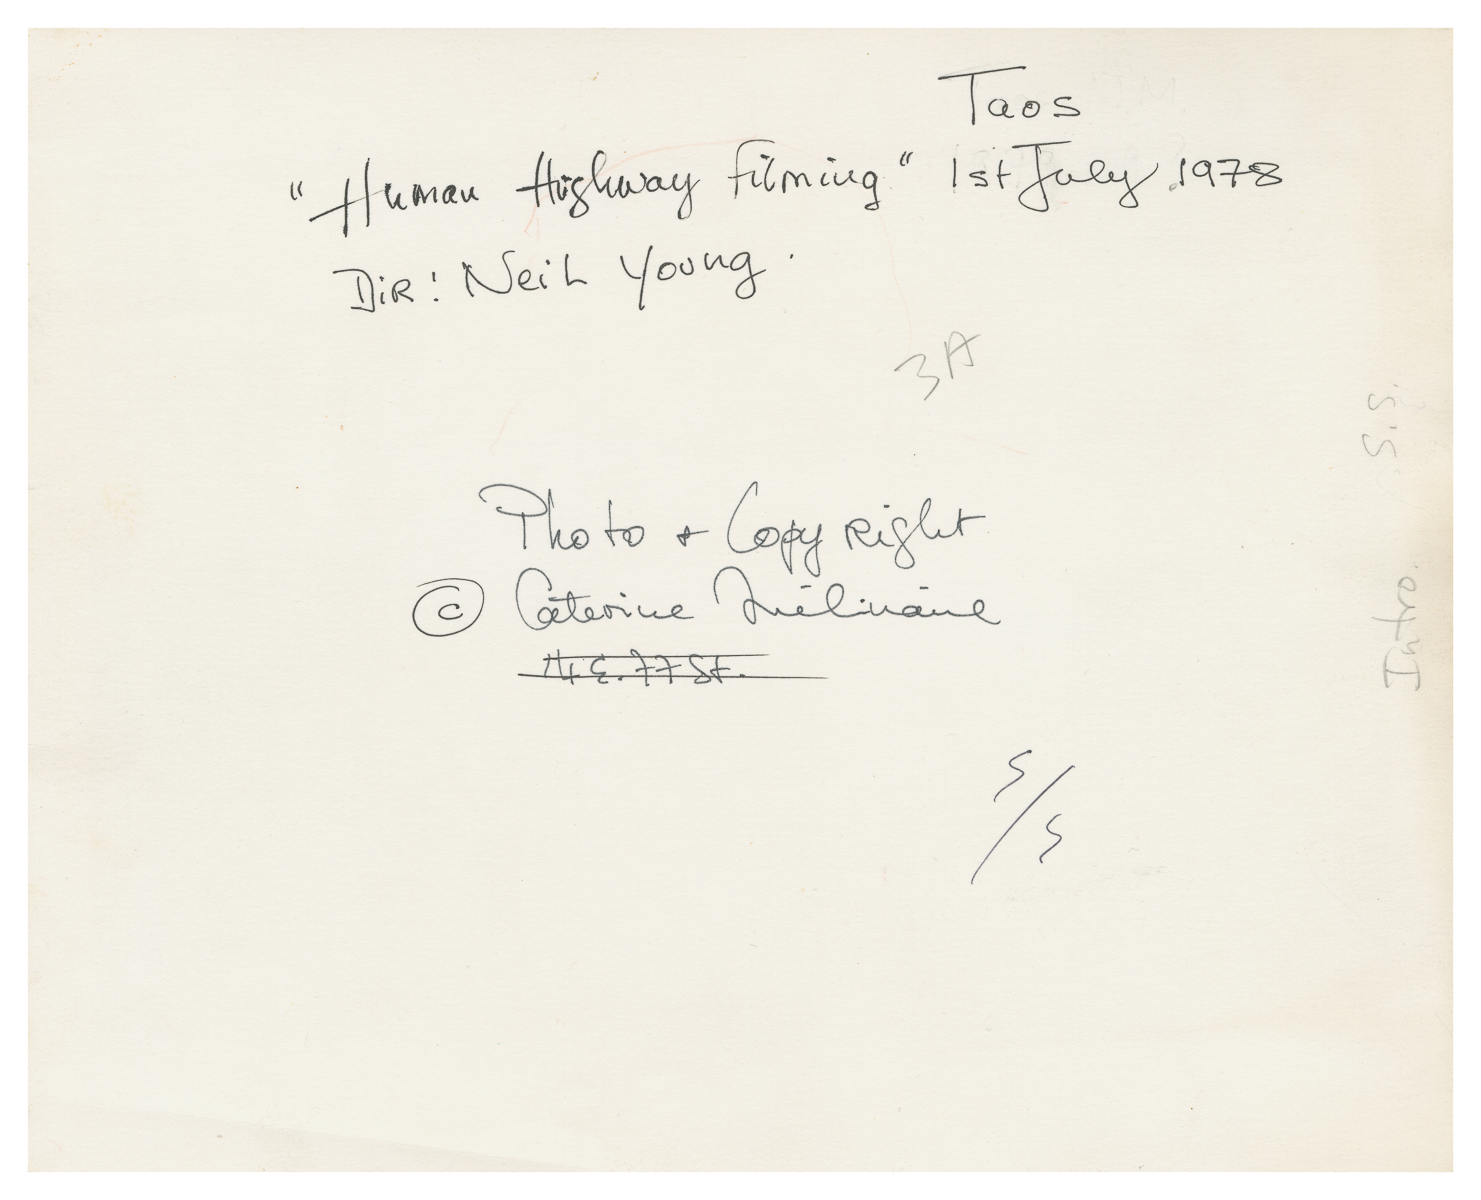 Taos
"Human Highway Filming" 1st July 1978
Dir: Neil Young.
3A
S.S.
Photo + Copyright
© Caterine Milinaire
4 E. 77 St.
Intro
S/S